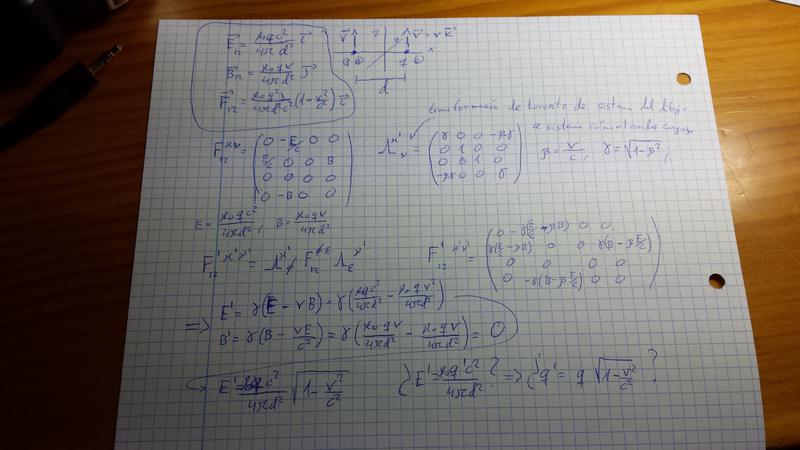 E⃗₁₂ = μ₀qc²/4πd² i⃗
B⃗₁₂ = μ₀qv/4πd² j⃗
F⃗₁₂ = μ₀q²/4πd² c²(1 - v²/c²) i⃗
z
v⃗
v⃗ = v k⃗
x
q ①
q ②
d
transformación de Lorentz de sistema del dibujo
a sistema comentando cargas
F₁₂^μν = ( 0 -E/c 0 0
E/c 0 0 B
0 0 0 0
0 -B 0 0 )
Λ^μ'_ν = ( γ 0 0 -βγ
0 1 0 0
0 0 1 0
-βγ 0 0 γ )
β = v/c, γ = √1-β²,
E = μ₀qc²/4πd², B = μ₀qv/4πd²
F'₁₂^μ'ν' = Λ^μ'_φ F₁₂^φε Λ_ε^ν'
F'₁₂^μ'ν' = ( 0 -γ(E/c - βB) 0 0
γ(E/c - βB) 0 0 γ(B - βE/c)
0 0 0 0
0 -γ(B - βE/c) 0 0 )
=> E' = γ(E - vB) = γ(μ₀qc²/4πd² - μ₀qv²/4πd²)
B' = γ(B - vE/c²) = γ(μ₀qv/4πd² - μ₀qv/4πd²) = 0
↪ E' = μ₀qc²/4πd² √1 - v²/c² ¿E' = μ₀q'c²/4πd²? => ¿q' = q √1 - v²/c²?